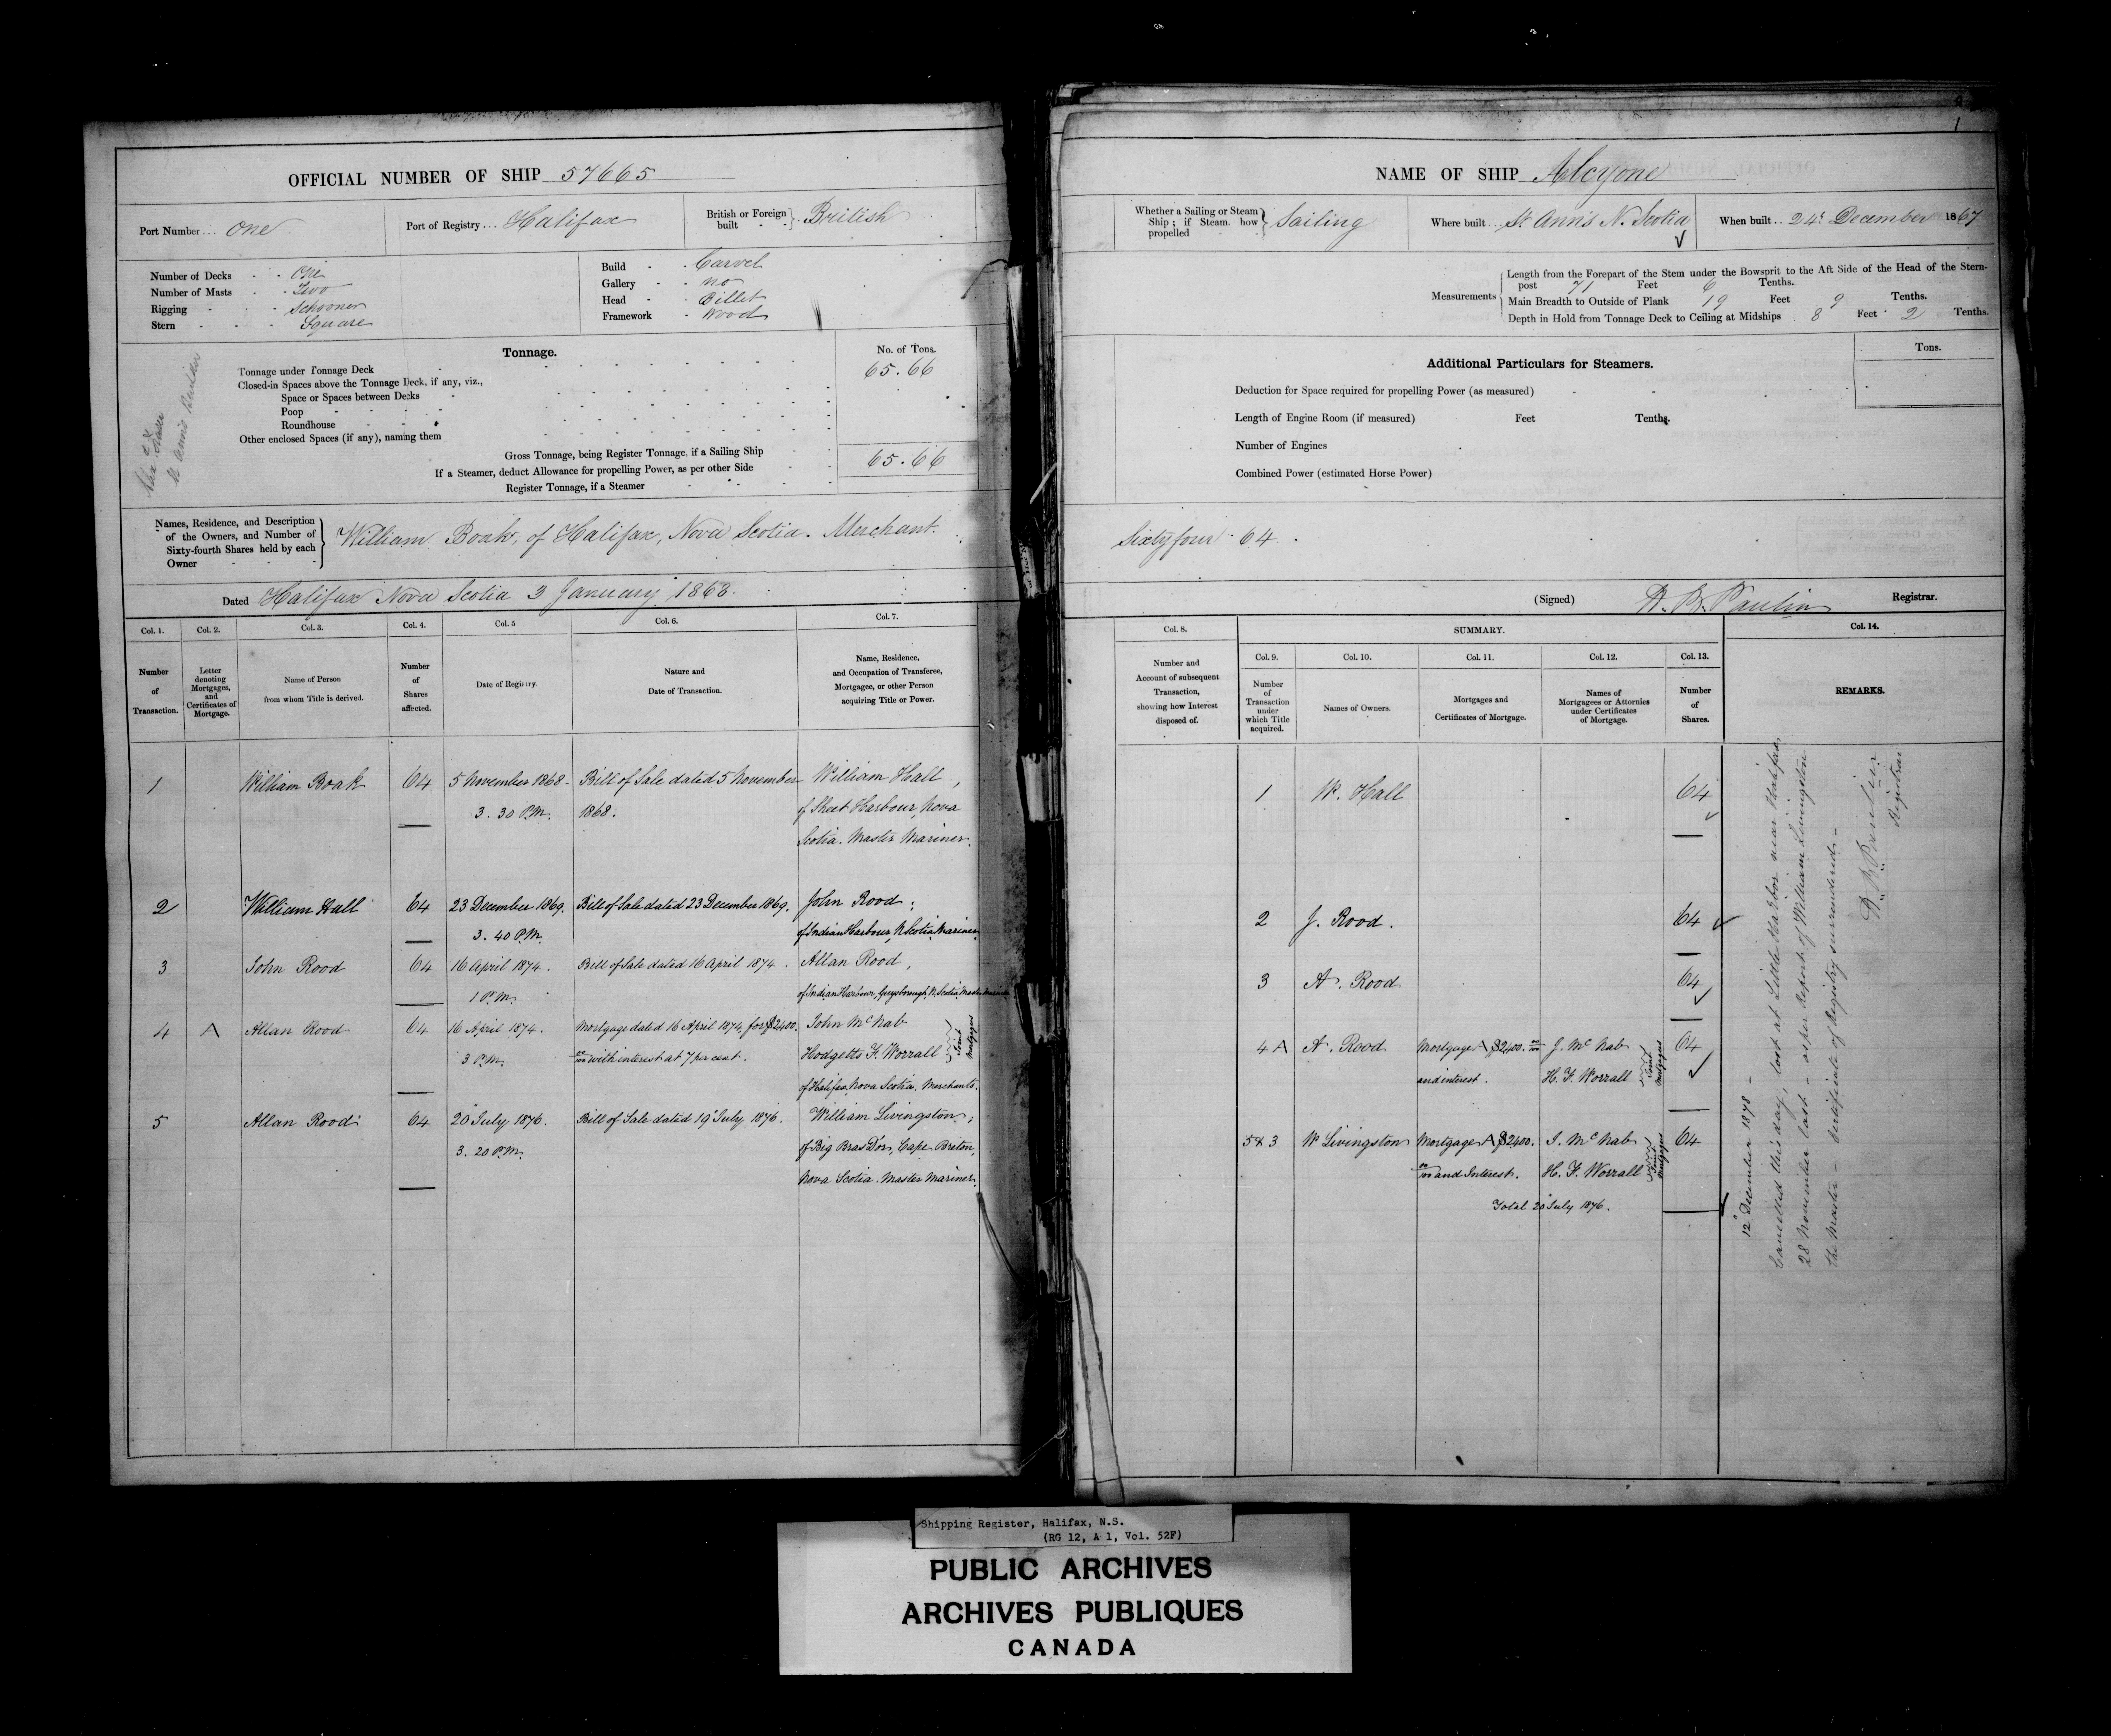 OFFICIAL NUMBER OF SHIP 57665
Port Number... One
Port of Registry... Halifax
British or Foreign built - - } British
Number of Decks - - One
Number of Masts - - Two
Rigging - - - Schooner
Stern - - - Square
Build - - Carvel
Gallery - - no
Head - - Billet
Framework - Wood
Tonnage.
No. of Tons.
Tonnage under Tonnage Deck
65.66
Closed-in Spaces above the Tonnage Deck, if any, viz.,
Space or Spaces between Decks
Poop
Roundhouse
Other enclosed Spaces (if any), naming them
Gross Tonnage, being Register Tonnage, if a Sailing Ship
65.66
If a Steamer, deduct Allowance for propelling Power, as per other Side
Register Tonnage, if a Steamer
St Anns Builder
Names, Residence, and Description
of the Owners, and Number of
Sixty-fourth Shares held by each
Owner
William Boak, of Halifax, Nova Scotia. Merchant.
Dated Halifax Nova Scotia 3 January 1868.
Col. 1. Col. 2. Col. 3. Col. 4. Col. 5 Col. 6. Col. 7.
Number of Transaction.
Letter denoting Mortgages, and Certificates of Mortgage.
Name of Person from whom Title is derived.
Number of Shares affected.
Date of Registry.
Nature and Date of Transaction.
Name, Residence, and Occupation of Transferee, Mortgagee, or other Person acquiring Title or Power.
1 William Boak 64 5 November 1868 - Bill of Sale dated 5 November William Hall,
3.30 P.M. 1868. of Sheet Harbour, Nova
Scotia. Master Mariner.
2 William Hall 64 23 December 1869. Bill of Sale dated 23 December 1869. John Rood;
3.40 P.M. of Indian Harbour, N. Scotia, Mariner
3 John Rood 64 16 April 1874. Bill of Sale dated 16 April 1874. Allan Rood,
1 P.M. of Indian Harbour, Guysborough, N. Scotia, Master Mariner
4 A Allan Rood 64 16 April 1874. Mortgage dated 16 April 1874, for $2400. John McNab
3 P.M. 00/100 with interest at 7 per cent. Hodgetts F. Worrall
Joint Mortgagees
of Halifax, Nova Scotia, Merchants.
5 Allan Rood 64 20 July 1876. Bill of Sale dated 19 July 1876. William Livingston,
3.20 P.M. of Big Bras Dor, Cape Breton,
Nova Scotia. Master Mariner.
1
NAME OF SHIP Alcyone
Whether a Sailing or Steam Ship; if Steam, how propelled } Sailing
Where built... St. Anns N. Scotia
When built.. 24 December 1867
Measurements
Length from the Forepart of the Stem under the Bowsprit to the Aft Side of the Head of the Stern-
post 71 Feet 6 Tenths.
Main Breadth to Outside of Plank 19 Feet 9 Tenths.
Depth in Hold from Tonnage Deck to Ceiling at Midships 8 Feet 2 Tenths.
Additional Particulars for Steamers.
Tons.
Deduction for Space required for propelling Power (as measured)
Length of Engine Room (if measured) Feet Tenths.
Number of Engines
Combined Power (estimated Horse Power)
Sixty four 64
(Signed) Registrar.
Col. 8.
SUMMARY.
Col. 14.
Col. 9. Col. 10. Col. 11. Col. 12. Col. 13.
Number and Account of subsequent Transaction, showing how Interest disposed of.
Number of Transaction under which Title acquired.
Names of Owners.
Mortgages and Certificates of Mortgage.
Names of Mortgagees or Attornies under Certificates of Mortgage.
Number of Shares.
REMARKS.
1 W. Hall 64
2 J. Rood. 64
3 A. Rood 64
4 A A. Rood Mortgage A $2,400. 00/100 J. McNab 64
and interest. H. F. Worrall
Joint Mortgagees
5 & 3 W Livingston Mortgage A $2400. J. McNab 64
00/100 and Interest. H. F. Worrall
Joint Mortgagees
Total 20 July 1876.
12 December 1878 -
Cancelled this day, lost at Little Harbor near Halifax,
28 November last - as per Report of William Livingston
the Master - Certificate of Registry surrendered -
Registrar
Shipping Register, Halifax, N.S.
(RG 12, A 1, Vol. 52F)
PUBLIC ARCHIVES
ARCHIVES PUBLIQUES
CANADA